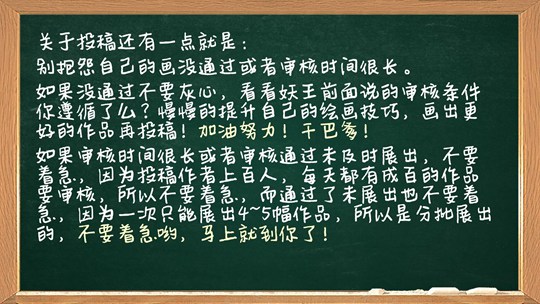 关于投稿还有一点就是：
别抱怨自己的画没通过或者审核时间很长。
如果没通过不要灰心，看看妖王前面说的审核条件
你遵循了么？慢慢的提升自己的绘画技巧，画出更
好的作品再投稿！加油努力！干巴爹！
如果审核时间很长或者审核通过未及时展出，不要
着急，因为投稿作者上百人，每天都有成百的作品
要审核，所以不要着急，而通过了未展出也不要着
急，因为一次只能展出4~5幅作品，所以是分批展出
的，不要着急哟，马上就到你了！